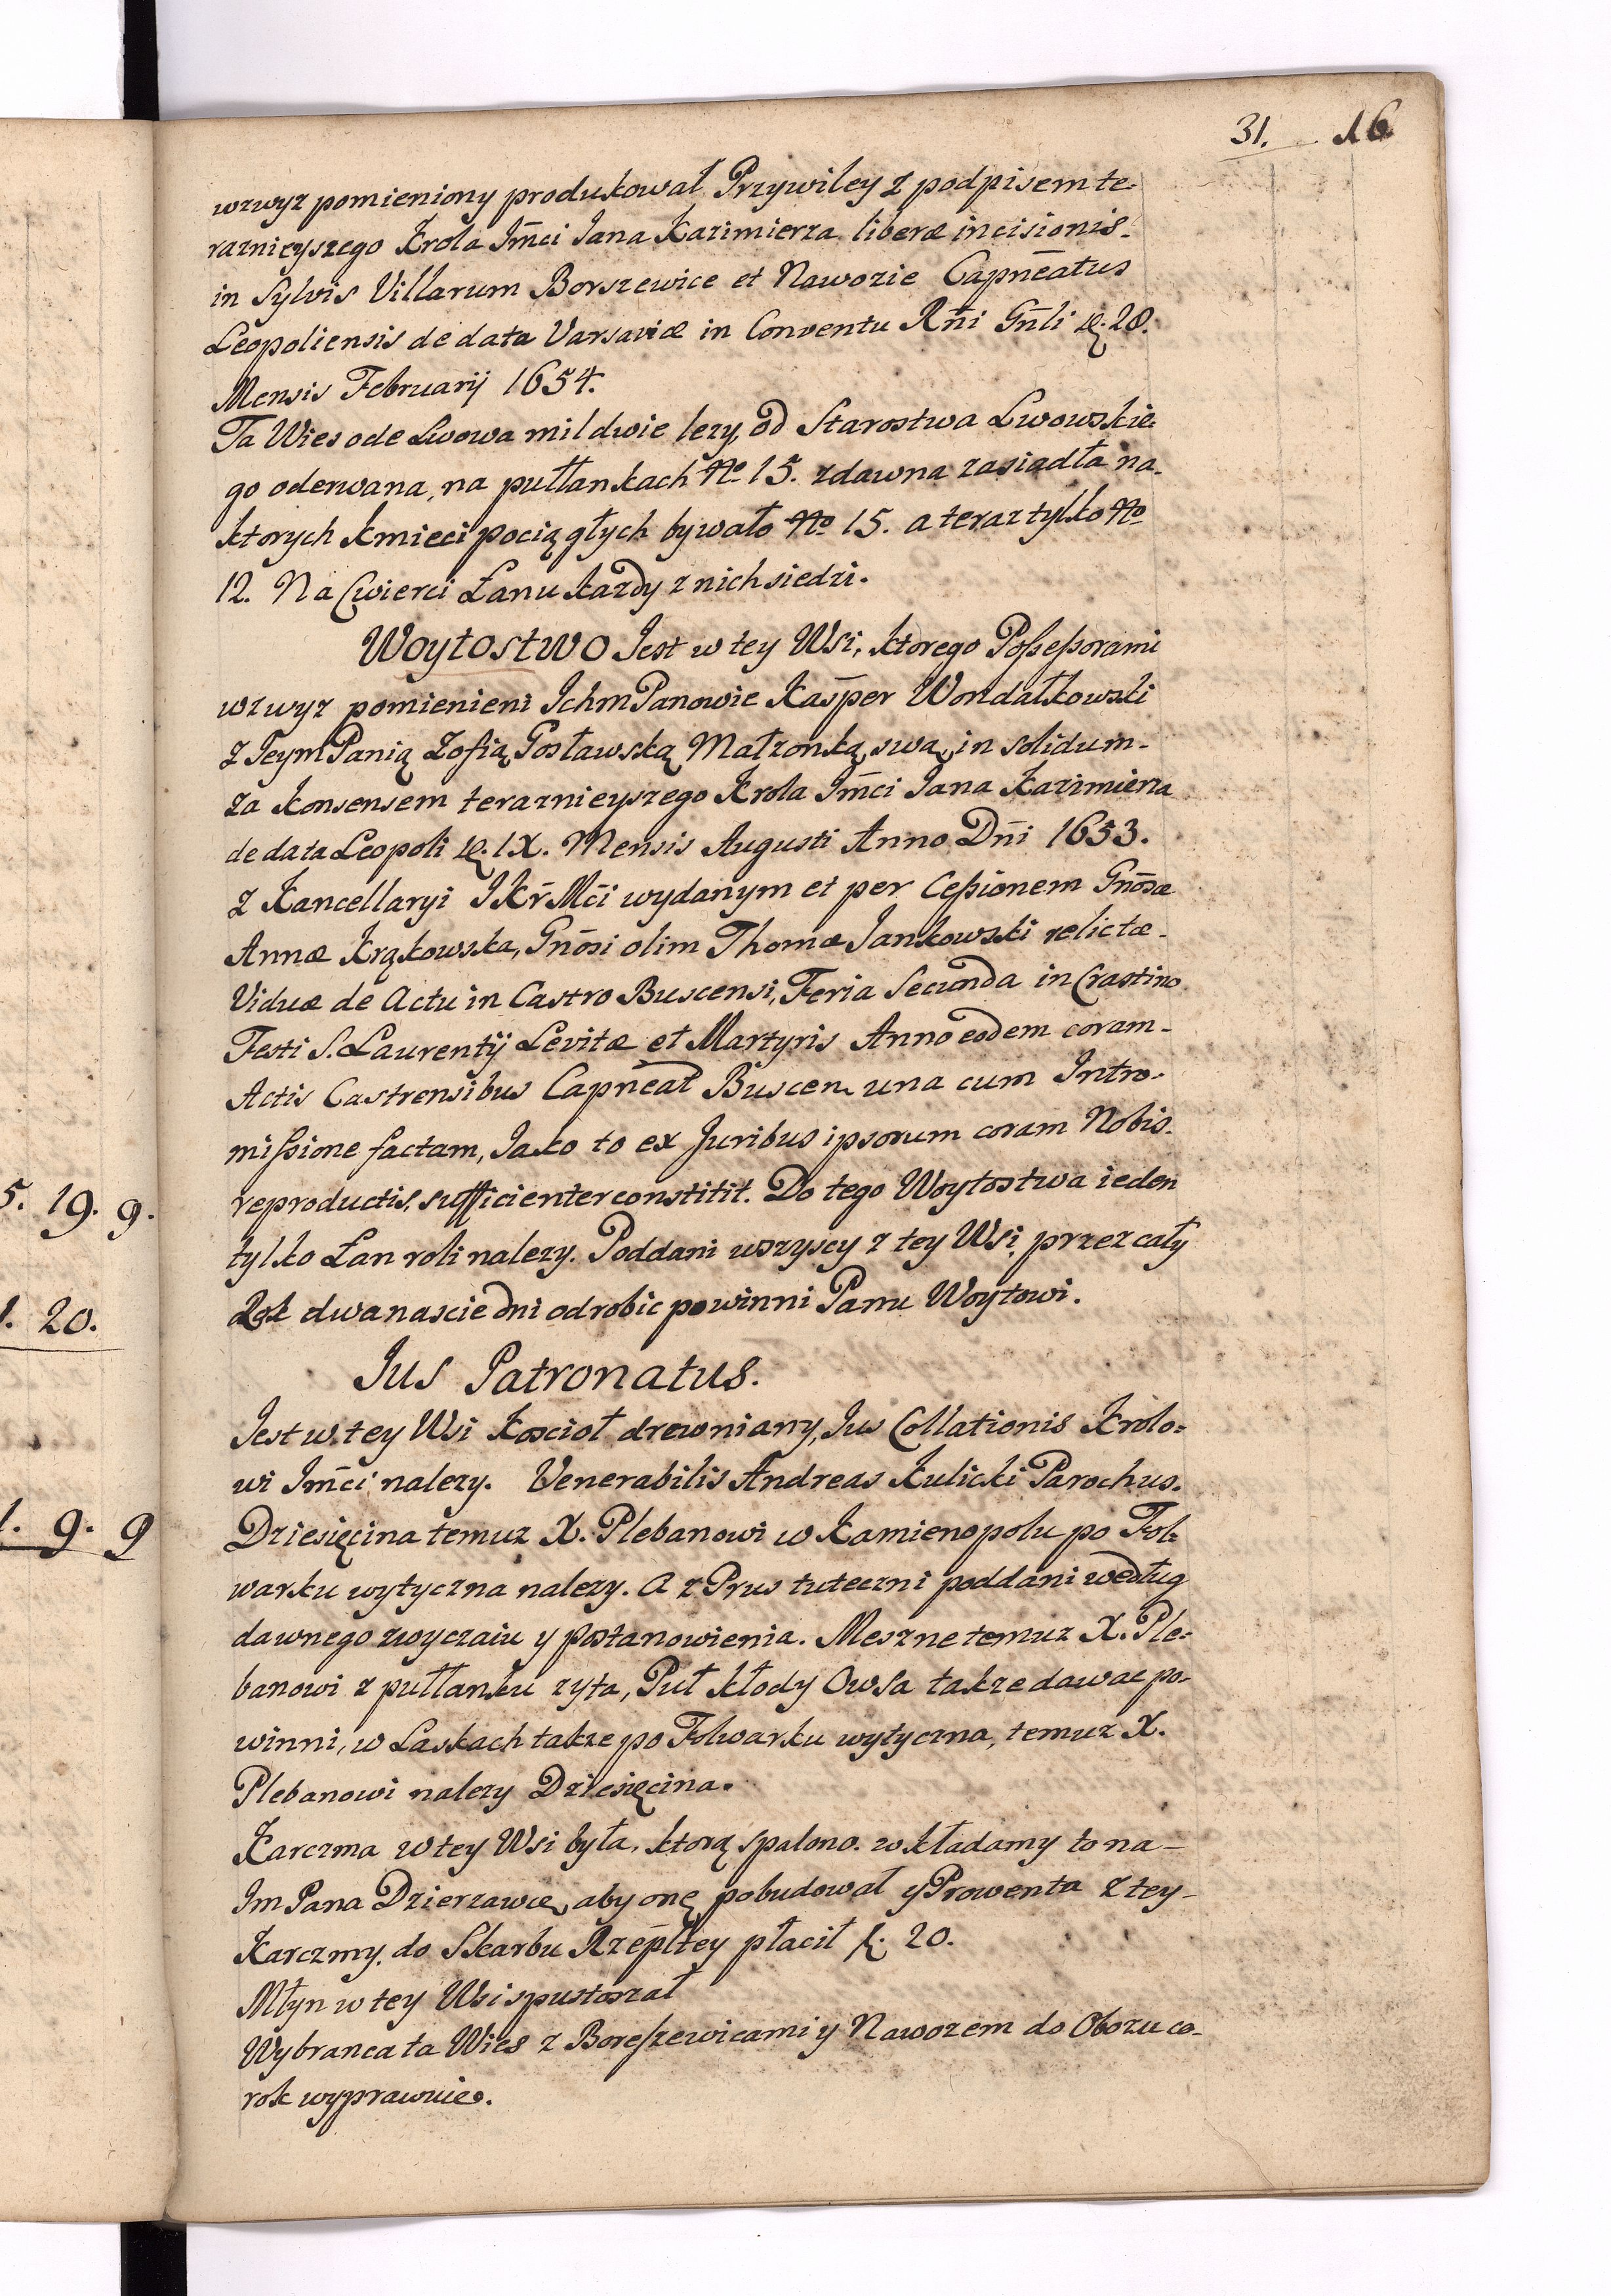 31. 16
wzwyz pomieniony produkował Przywiley z podpisem te-
raznieyszego Krola Jm̄ci Jana Kazimierza liberæ incisionis.
in Sylvis Villarum Borszewice et Nawozie Capn̄eatus
Leopoliensis de data Varsaviæ in Conventu Rn̄i Gn̄li D. 28.
Mensis Februarij 1654.
Ta Wies ode Lwowa mil dwie lezy, od Starostwa Lwowskie-
go oderwana, na pułłankach No 15. zdawna zasiadła na-
ktorych kmieci pociągłych bywało No 15. a teraz tylko No
12. Na Cwierci Łanu kazdy z nich siedzi.
Woytostwo Jest w tey Wsi, ktorego Poſseſsorami
wzwyz pomienieni Ichm Panowie Kasper Wondałkowski
z Jeym Panią Zofią Gosławską Małzonką swą, in solidum-
za konsensem teraznieyszego Krola Jm̄ci Jana Kazimierza
de data Leopoli D. IX. Mensis Augusti Anno Dn̄i 1653.
z Kancellaryi J Kr̄ Mc̄i wydanym et per Ceſsionem Gnōsæ
Annæ Krąkowska, Gnōsi olim Thomæ Jankowski relictæ-
Viduæ de Actu in Castro Buscensi, Feria Secunda in Crastino
Festi S. Laurentij Levitæ et Martyris Anno eodem coram-
Actis Castrensibus Capneat Buscen. una cum Intro-
miſsione factam, Jako to ex Juribus ipsorum coram Nobis.
reproductis, sufficienter constitit. Do tego Woytostwa ieden
tylko Łan roli nalezy. Poddani wszyscy z tey Wsi, przez cały
Rok dwanascie dni odrobic powinni Panu Woytowi.
Jus Patronatus.
Jest w tey Wsi Kosciot drewniany, Jus Collationis Krolo-
wi Jm̄ci nalezy. Venerabilis Andreas Kulicki Parochus.
Dziesięcina temuz X. Plebanowi w Kamienopolu po Fol-
warku wytyczna nalezy. A z Prus tuteczni poddani według
dawnego zwyczaiu y postanowienia. Meszne temuz X. Ple-
banowi z pułłanku zyta, Puł kłody Owsa takze dawac po-
winni, w Laskach takze po Folwarku wytyczna, temuz X.
Plebanowi nalezy Dziesięcina.
Karczma w tey Wsi była, ktorą spalono. wkładamy to na-
Jm Pana Dzierzawcę, aby onę pobudował y Prowenta z tey-
Karczmy, do Skarbu Rzēpltey płacił f. 20.
Młyn w tey Wsi spustoszał
Wybranca ta Wies z Boreſzewicami y Nawozem do Obozu co-
rok wyprawuie.
5. 19. 9.
1. 20.
1. 9. 9